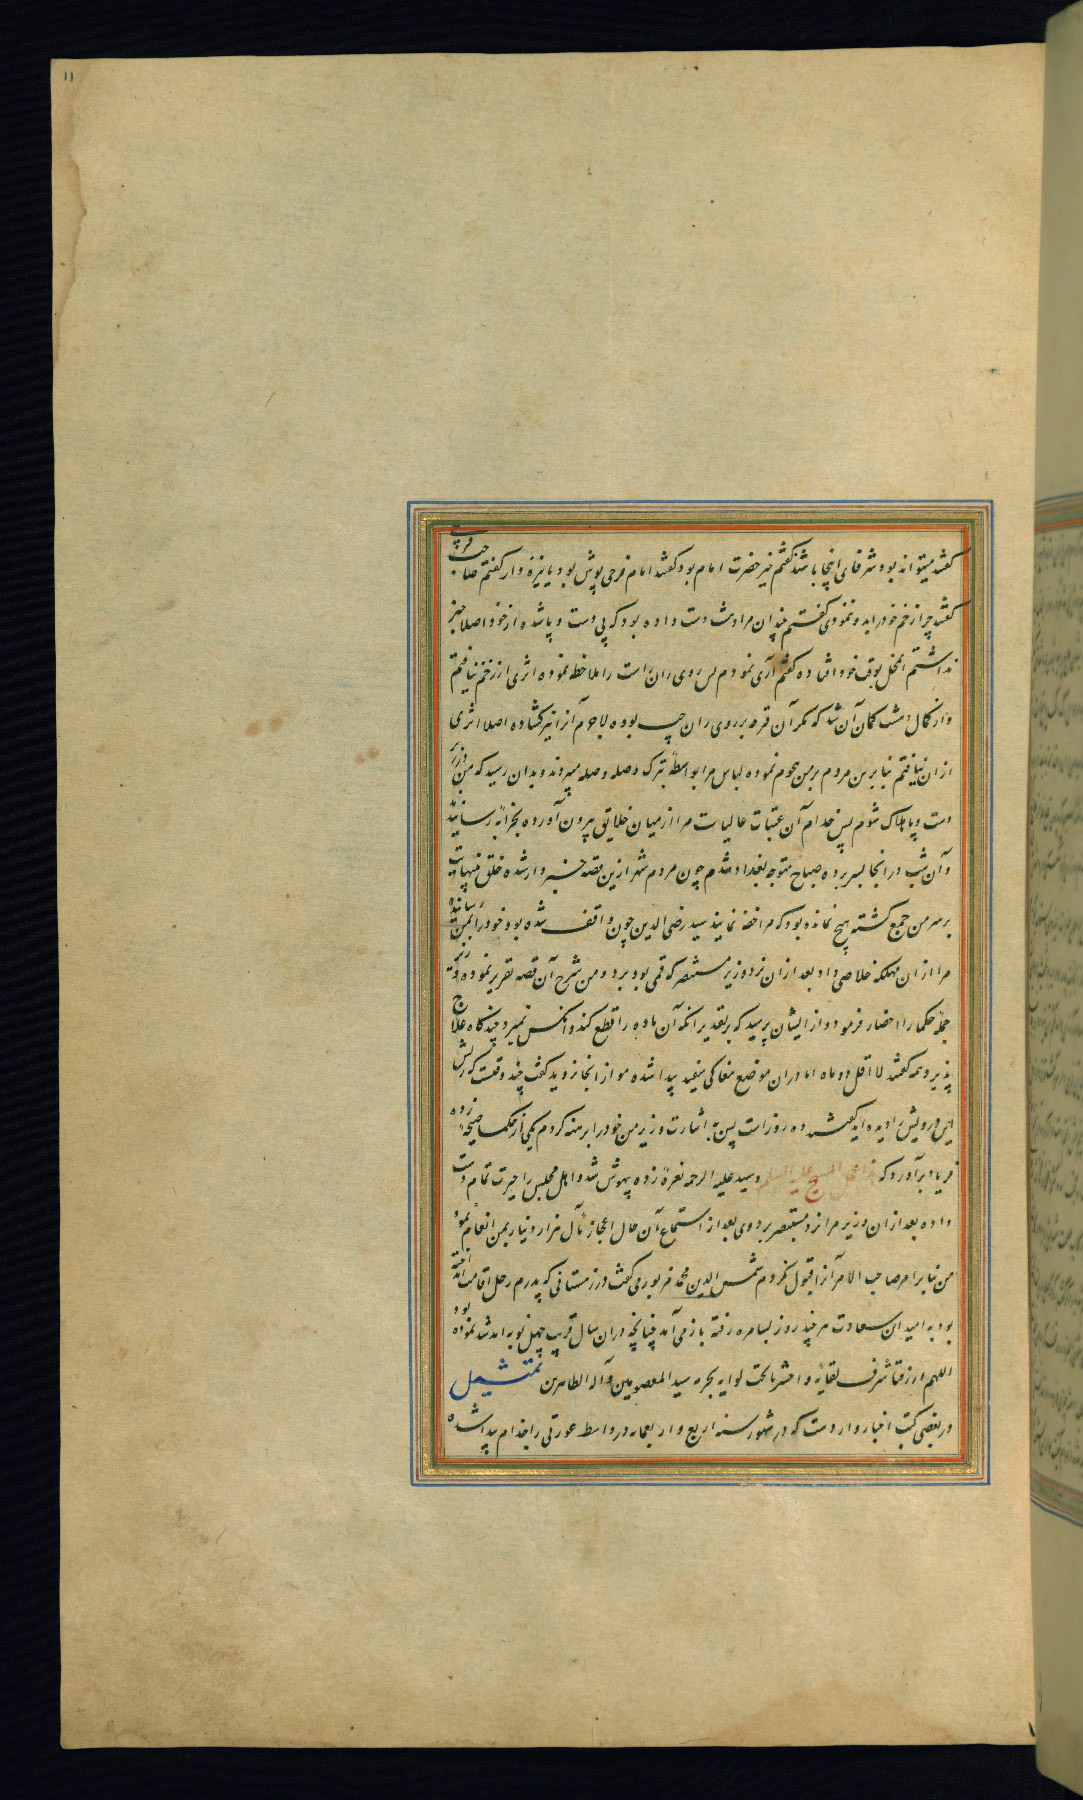 ۱۱
گفتند میتواند بود شرفای اینجا باشد گفتم خیر حضرت امام بود گفتند امام فرجی پوش بود یا نیزه دار گفتم صاحب فرجی
گفتند چرا زخم خود را بدو ننمودی گفتم چندان مرا دهشت دست داده بود که بی دست و پا شده از خود اصلا خبر
نداشتم المحل بوقت خود افشرده گفتم آری نمودم پس روی ران راست را ملاحظه نموده اثری از زخم نیافتم
و از کمال دهشت گمان آن شد که مگر آن قرحه بر روی ران چپ بوده لاجرم آنرا نیز گشاده اصلا اثری
از آن نیافتم بنابرین مردم بر من هجوم نموده لباس مرا بواسطه تبرک وصله وصله میبردند و بدان رسید که من در زیر
دست و پا هلاک شوم پس خدام آن عتبات عالیات مرا از میان خلایق بیرون آورده بخزانه رسانیدند
و آن شب در آنجا بسر برده صباح متوجه بغداد شدم چون مردم شهر ازین قصه خبردار شده خلق بینهایت
بر سر من جمع گشته هیچ نمانده بود که مرا خفه نمایند سید رضی الدین چون واقف شده بود خود را بمن رسانیده
مرا از آن مهلکه خلاصی داد بعد از آن نزد وزیر مستنصر که قمی بود برد و من شرح آن قصه تقریر نموده وزیر
جمله حکما را احضار فرمود و از ایشان پرسید که بر تقدیر آنکه آن ماده را قطع کنند و آنکس نمیرد چندگاه علاج
پذیرد همه گفتند لا اقل دو ماه اما در آن موضع مغاکی سفید پیدا شده مو از آنجا نروید گفت چند وقتست که ریش
این درویش را دیده اید گفتند ده روز است پس به اشارت وزیر من خود را برهنه کردم یکی از حکما صیحه زده
فریاد برآورد که هذا عمل المسیح علیه السلم و سید علیه الرحمه نعره زده بیهوش شد و اهل مجلس را حیرت تمام دست
داده بعد از آن وزیر مرا نزد مستنصر برد وی بعد از استماع آن حال اعجاز مآل هزار دینار بمن انعام نمود
من بنابر امر صاحب الامر آنرا قبول نکردم شمس الدین محمد مزبور می گفت در زمستانی که پدرم رحل اقامت انداخته
بود به امید این سعادت هر چند روز بسامره رفته باز می آمد چنانچه در آن سال قریب چهل نوبه آمد شد نموده بود
اللهم ارزقنا شرف لقایه و احشرنا تحت لوایه بحرمة سید المعصومین و آله الطاهرین تمثیل
در بعضی کتب اخبار وارد است که در شهور سنه اربع و اربعمایه در واسط عورتی را جذام پیدا شده